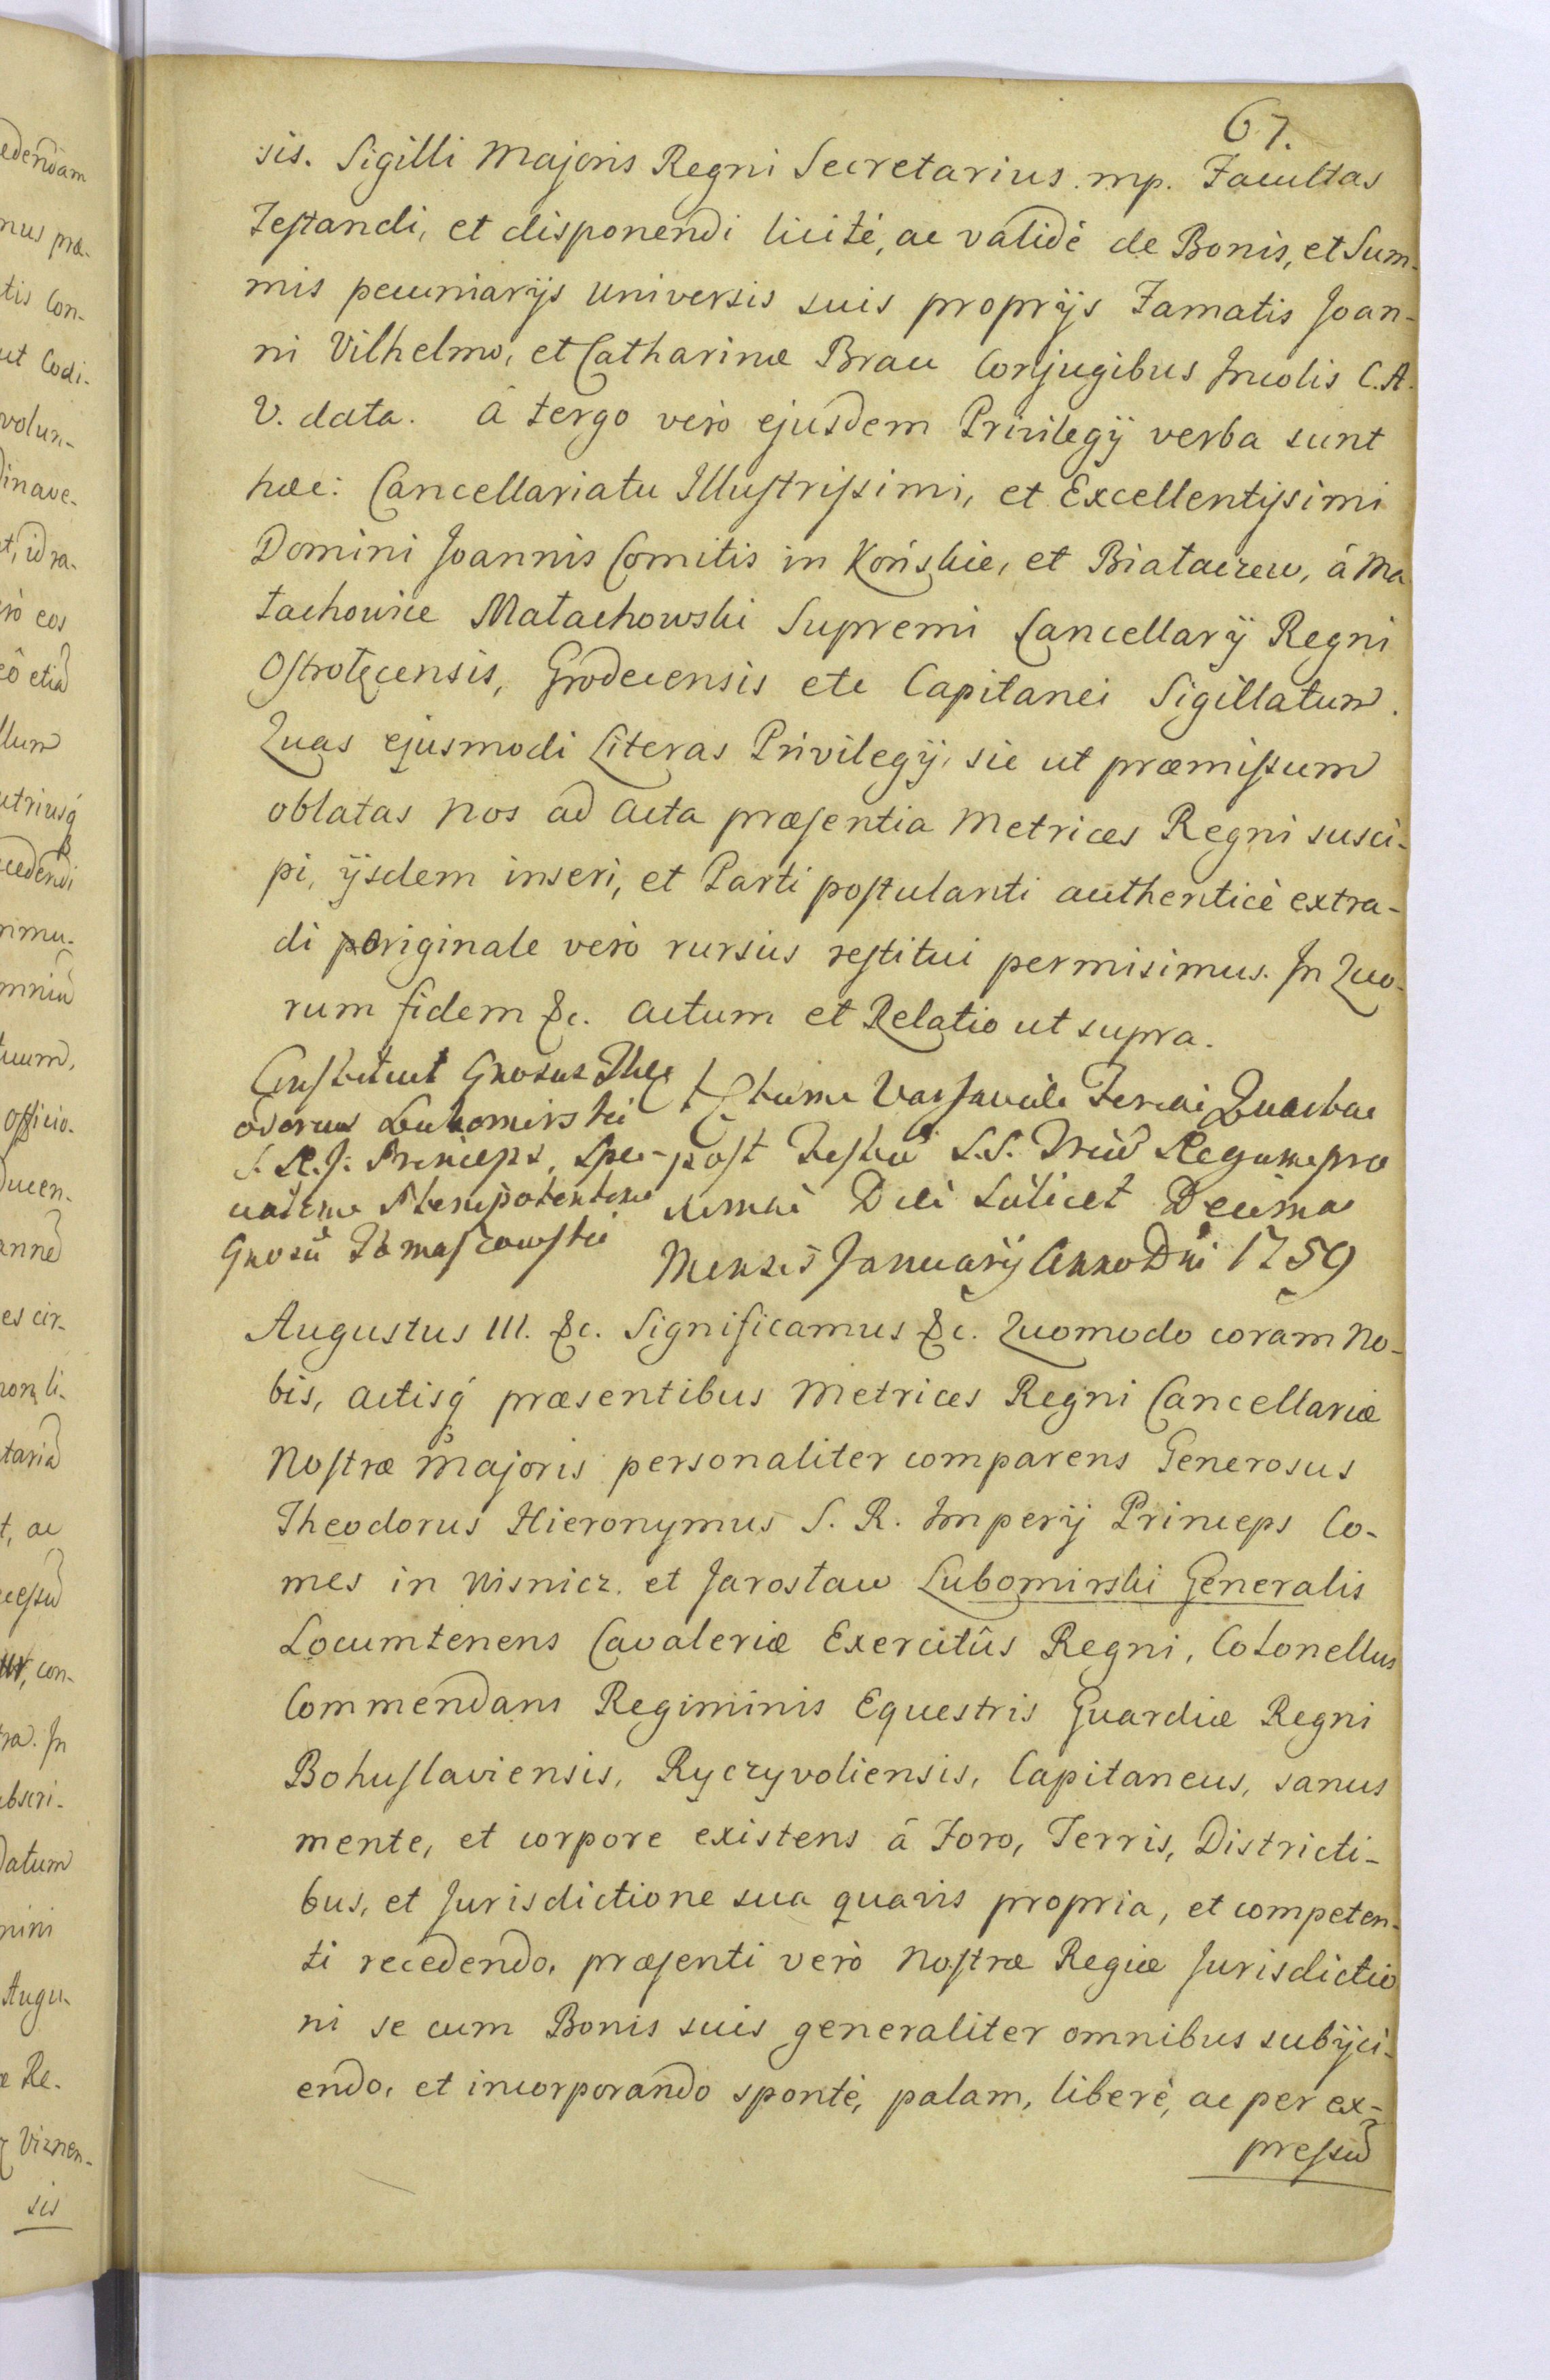 67.
sis. Sigilli Majoris Regni Secretarius mp. Facultas
Testandi, et disponendi licitè, ac validè de Bonis, et Sum-
mis pecuniarijs universis suis proprijs Famatis Joan-
ni Vilhelmo, et Catharinæ Brau Conjugibus Incolis C. A.
V. data. à tergo verò ejusdem Privilegij verba sunt
hæc: Cancellariatu Illustrissimi, et Excellentissimi
Domini Joannis Comitis in Końskie, et Białaczew, á Ma
łachowice Małachowski Supremi Cancellarij Regni
Ostrołęcensis, Grodecensis etc Capitanei Sigillatum.
Quas ejusmodi Literas Privilegij, sic ut præmissum
oblatas nos ad Acta præsentia Metrices Regni susci-
pi, ijsdem inseri, et Parti postulanti authenticè extra-
di originale verò rursus restitui permisimus. In Quo-
rum fidem &c. Actum et Relatio ut supra.
Constituit Gnosus The
odorus Lubomirski
S. R. J. Princeps, Spe-
cialem Plenipotentem
Gnosũ Tomaszowski
Actum Varsaviæ Feria Quarta
post Festũ S.S. Triũ Regum pro
xima Die Scilicet Decima
Mensis Januarij Anno Dni 1759
Augustus III. &c. Significamus &c. Quomodo coram No-
bis, Actisq́ præsentibus Metrices Regni Cancellariæ
Nostræ Majoris personaliter comparens Generosus
Theodorus Hieronymus S. R. Imperij Princeps Co-
mes in Wisnicz. et Jarosław Lubomirski Generalis
Locumtenens Cavaleriæ Exercitûs Regni, Colonellus
Commendans Regiminis Equestris Guardiæ Regni
Bohuslaviensis, Ryczyvoliensis, Capitaneus, sanus
mente, et corpore existens á Foro, Terris, Districti-
bus, et Jurisdictione sua quavis propria, et competen-
ti recedendo, præsenti verò Nostræ Regiæ Jurisdictio
ni se cum Bonis suis generaliter omnibus subijci-
endo, et incorporando spontè, palam, liberè, ac per ex-
pressũ